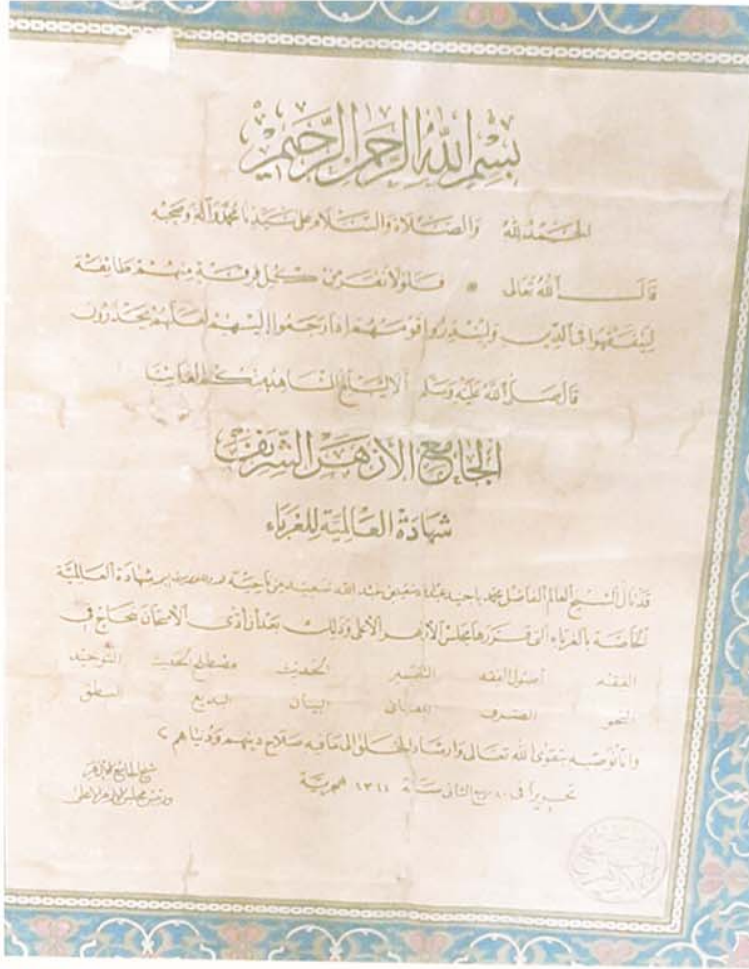 بسم الله الرحمن الرحيم
الحمد لله والصلاة والسلام على سيدنا محمد وآله وصحبه
قال الله تعالى * فلولا نفر من كل فرقة منهم طائفة
ليتفقهوا في الدين ولينذروا قومهم إذا رجعوا إليهم لعلهم يحذرون
قال صلى الله عليه وسلم ألا ليبلغ الشاهد منكم الغائب
الجامع الأزهر الشريف
شهادة العالمية للغرباء
قد نال الشيخ العالم الفاضل محمد باحيد بن عبد الله من ناحية شهادة العالمية
الخاصة بالغرباء التي قررها مجلس الأزهر الأعلى وذلك بعد أن أدى الامتحان بنجاح في
الفقه أصول الفقه التفسير الحديث مصطلح الحديث التوحيد
النحو الصرف المعاني البيان البديع المنطق
وإنا نوصيه بتقوى الله تعالى وإرشاد الخلق إلى ما فيه صلاح دينهم ودنياهم
تحريرا في ربيع الثاني سنة هجرية
شيخ الجامع الأزهر
ورئيس مجلس الأزهر الأعلى